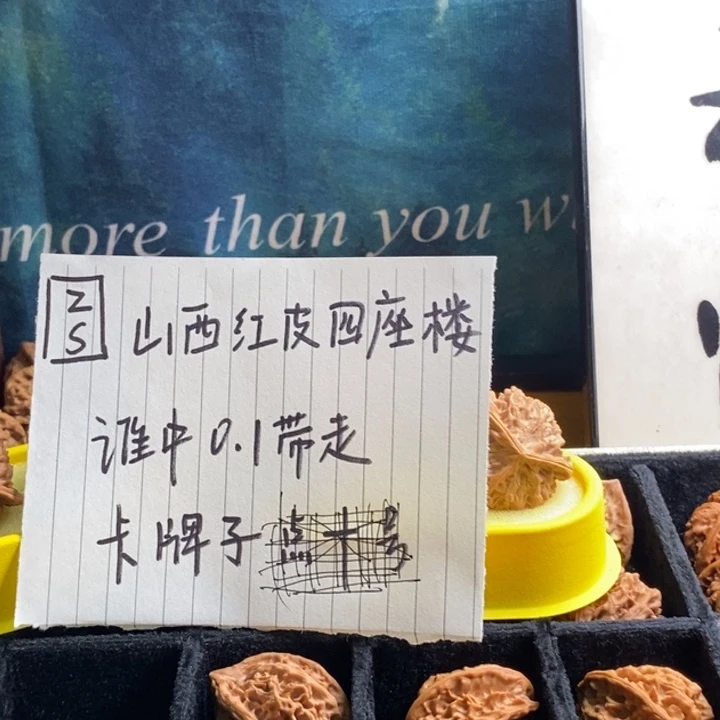 more than you w
Z
S
山西红皮四座楼
谁中0.1带走
卡牌子点十号